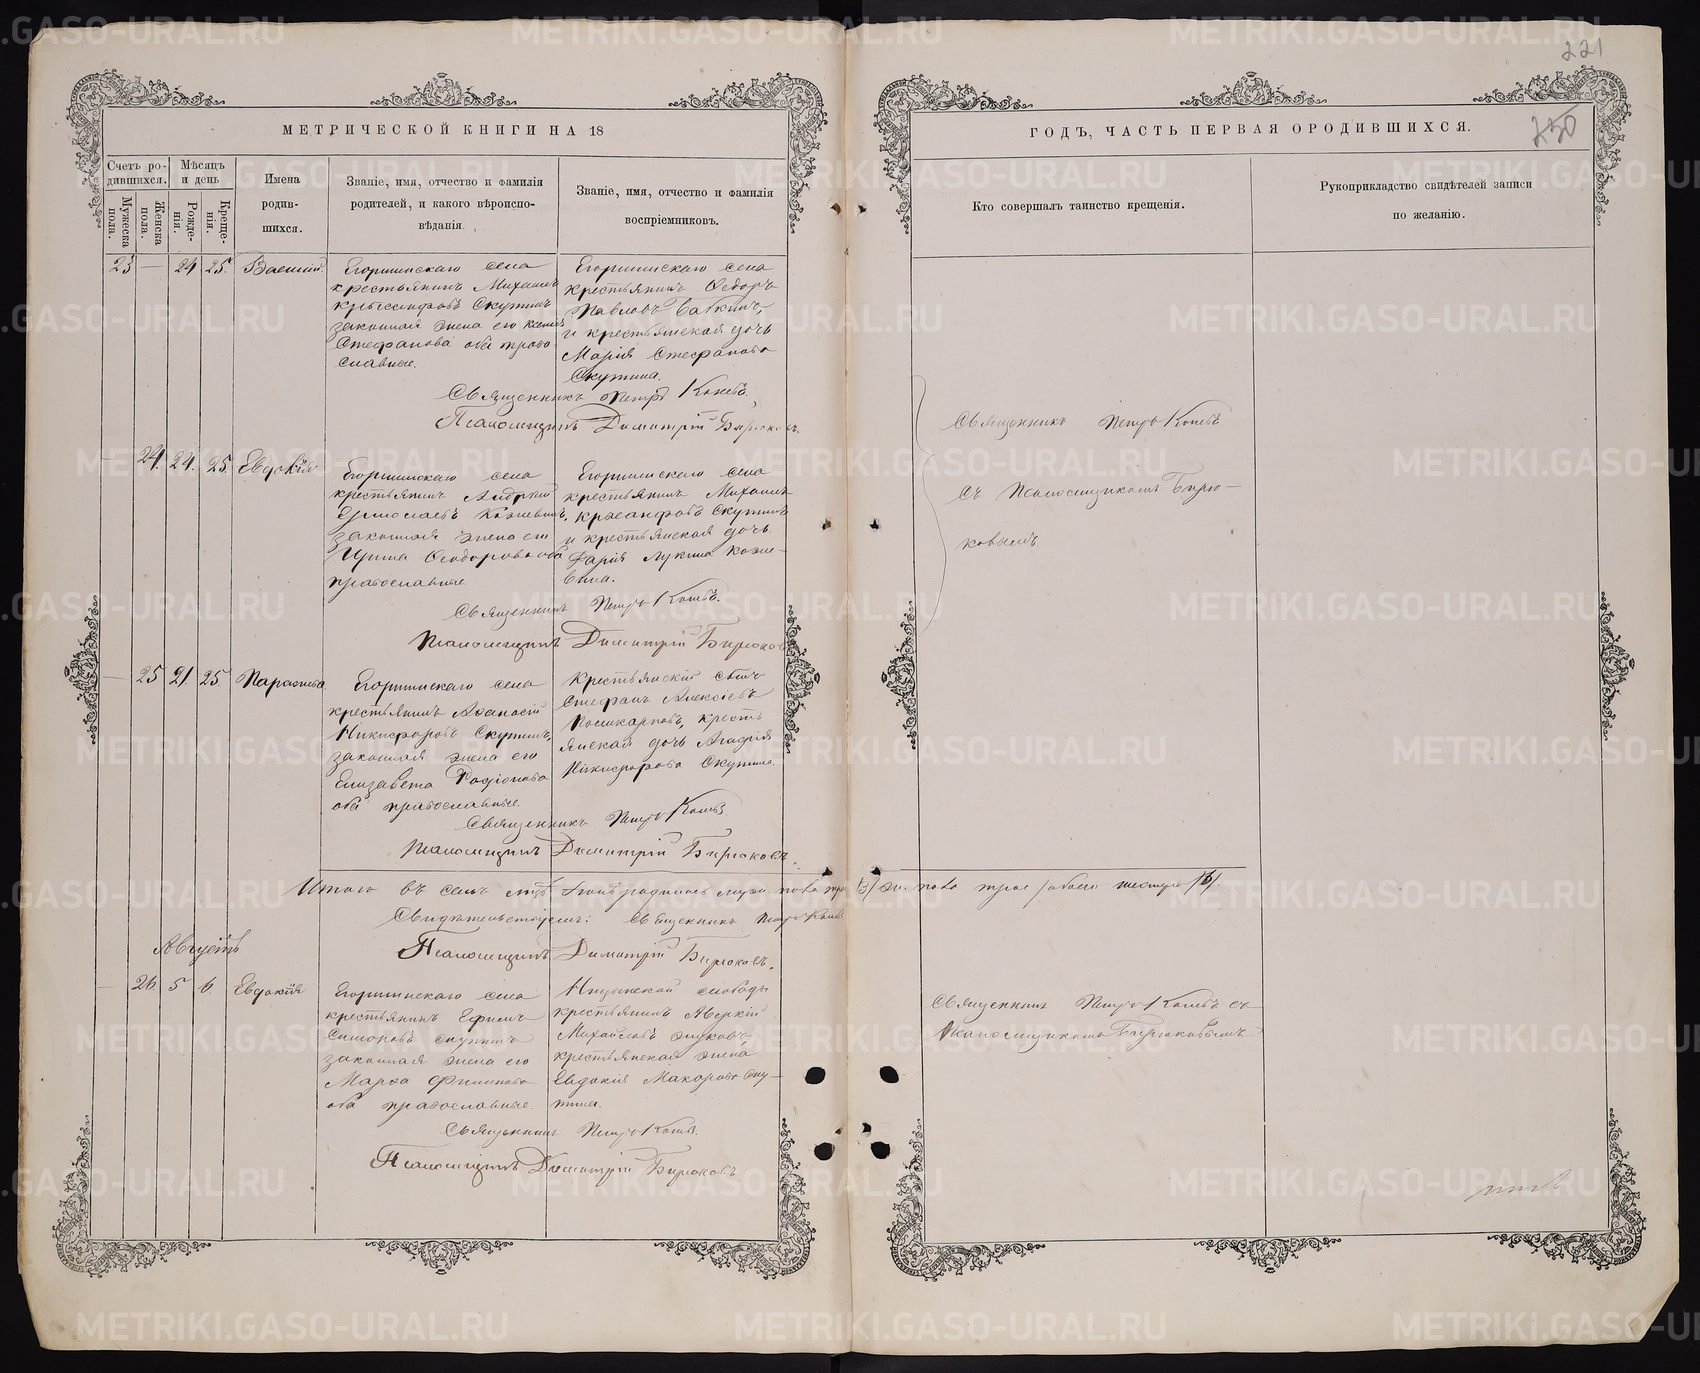 221
250
МЕТРИЧЕСКОЙ КНИГИ НА 18
ГОДЪ, ЧАСТЬ ПЕРВАЯ О РОДИВШИХСЯ.
Счетъ ро-
дившихся.
Мужеска пола.
Женска пола.
Мѣсяцъ
и день
Рожде-
нія.
Креще-
нія.
Имена
родив-
шихся.
Званіе, имя, отчество и фамилія
родителей, и какого вѣроиспо-
вѣданія.
Званіе, имя, отчество и фамилія
воспріемниковъ.
Кто совершалъ таинство крещенія.
Рукоприкладство свидѣтелей записи
по желанію.
23 — 24 25. Василій
Егоршинскаго села
крестьянинъ Михаилъ
Скутинъ
законная жена его
Стефанова оба право
славные.
Егоршинскаго села
крестьянинъ Ѳедоръ
Павловъ
и крестьянская дочь
Марія Стефанова
Скутина.
Священникъ Петръ Коневъ.
Псаломщикъ Димитрій Бирюковъ.
24. 24. 25 Евдокія
Егоршинскаго села
крестьянинъ Андрей
законная жена его
Ирина Ѳеодорова оба
православные.
Егоршинскаго села
крестьянинъ Михаилъ
Скутинъ
и крестьянская дочь
Дарія Лукина
Священникъ Петръ Коневъ.
Псаломщикъ Димитрій Бирюковъ
25 21 25. Параскева
Егоршинскаго села
крестьянинъ Аѳанасій
Никифоровъ Скутинъ,
законная жена его
Елизавета Родіонова
оба православные.
Крестьянскій сынъ
Стефанъ Алексѣевъ
Поликарповъ, кресть
янская дочь Агафія
Никифорова Скутина.
Священникъ Петръ Коневъ
Псаломщикъ Димитрій Бирюковъ.
Итого въ семъ родилось муж. пола три (3) жен. пола трое, обоего шестеро (6).
Свидѣтельствуемъ: Священникъ Петръ Коневъ
Псаломщикъ Димитрій Бирюковъ.
Августъ
26 5 6. Евдокія
Егоршинскаго села
крестьянинъ Ефимъ
Скутинъ
законная жена его
Марѳа Филипова
оба православные.
слободы
крестьянинъ Аверкій
Михайловъ
крестьянская жена
Евдокія Макарова Ску-
тина.
Священникъ Петръ Коневъ.
Псаломщикъ Димитрій Бирюковъ
Священникъ Петръ Коневъ
съ Псаломщикомъ Бирю-
ковымъ
Священникъ Петръ Коневъ съ
Псаломщикомъ Бирюковымъ
METRIKI.GASO-URAL.RU